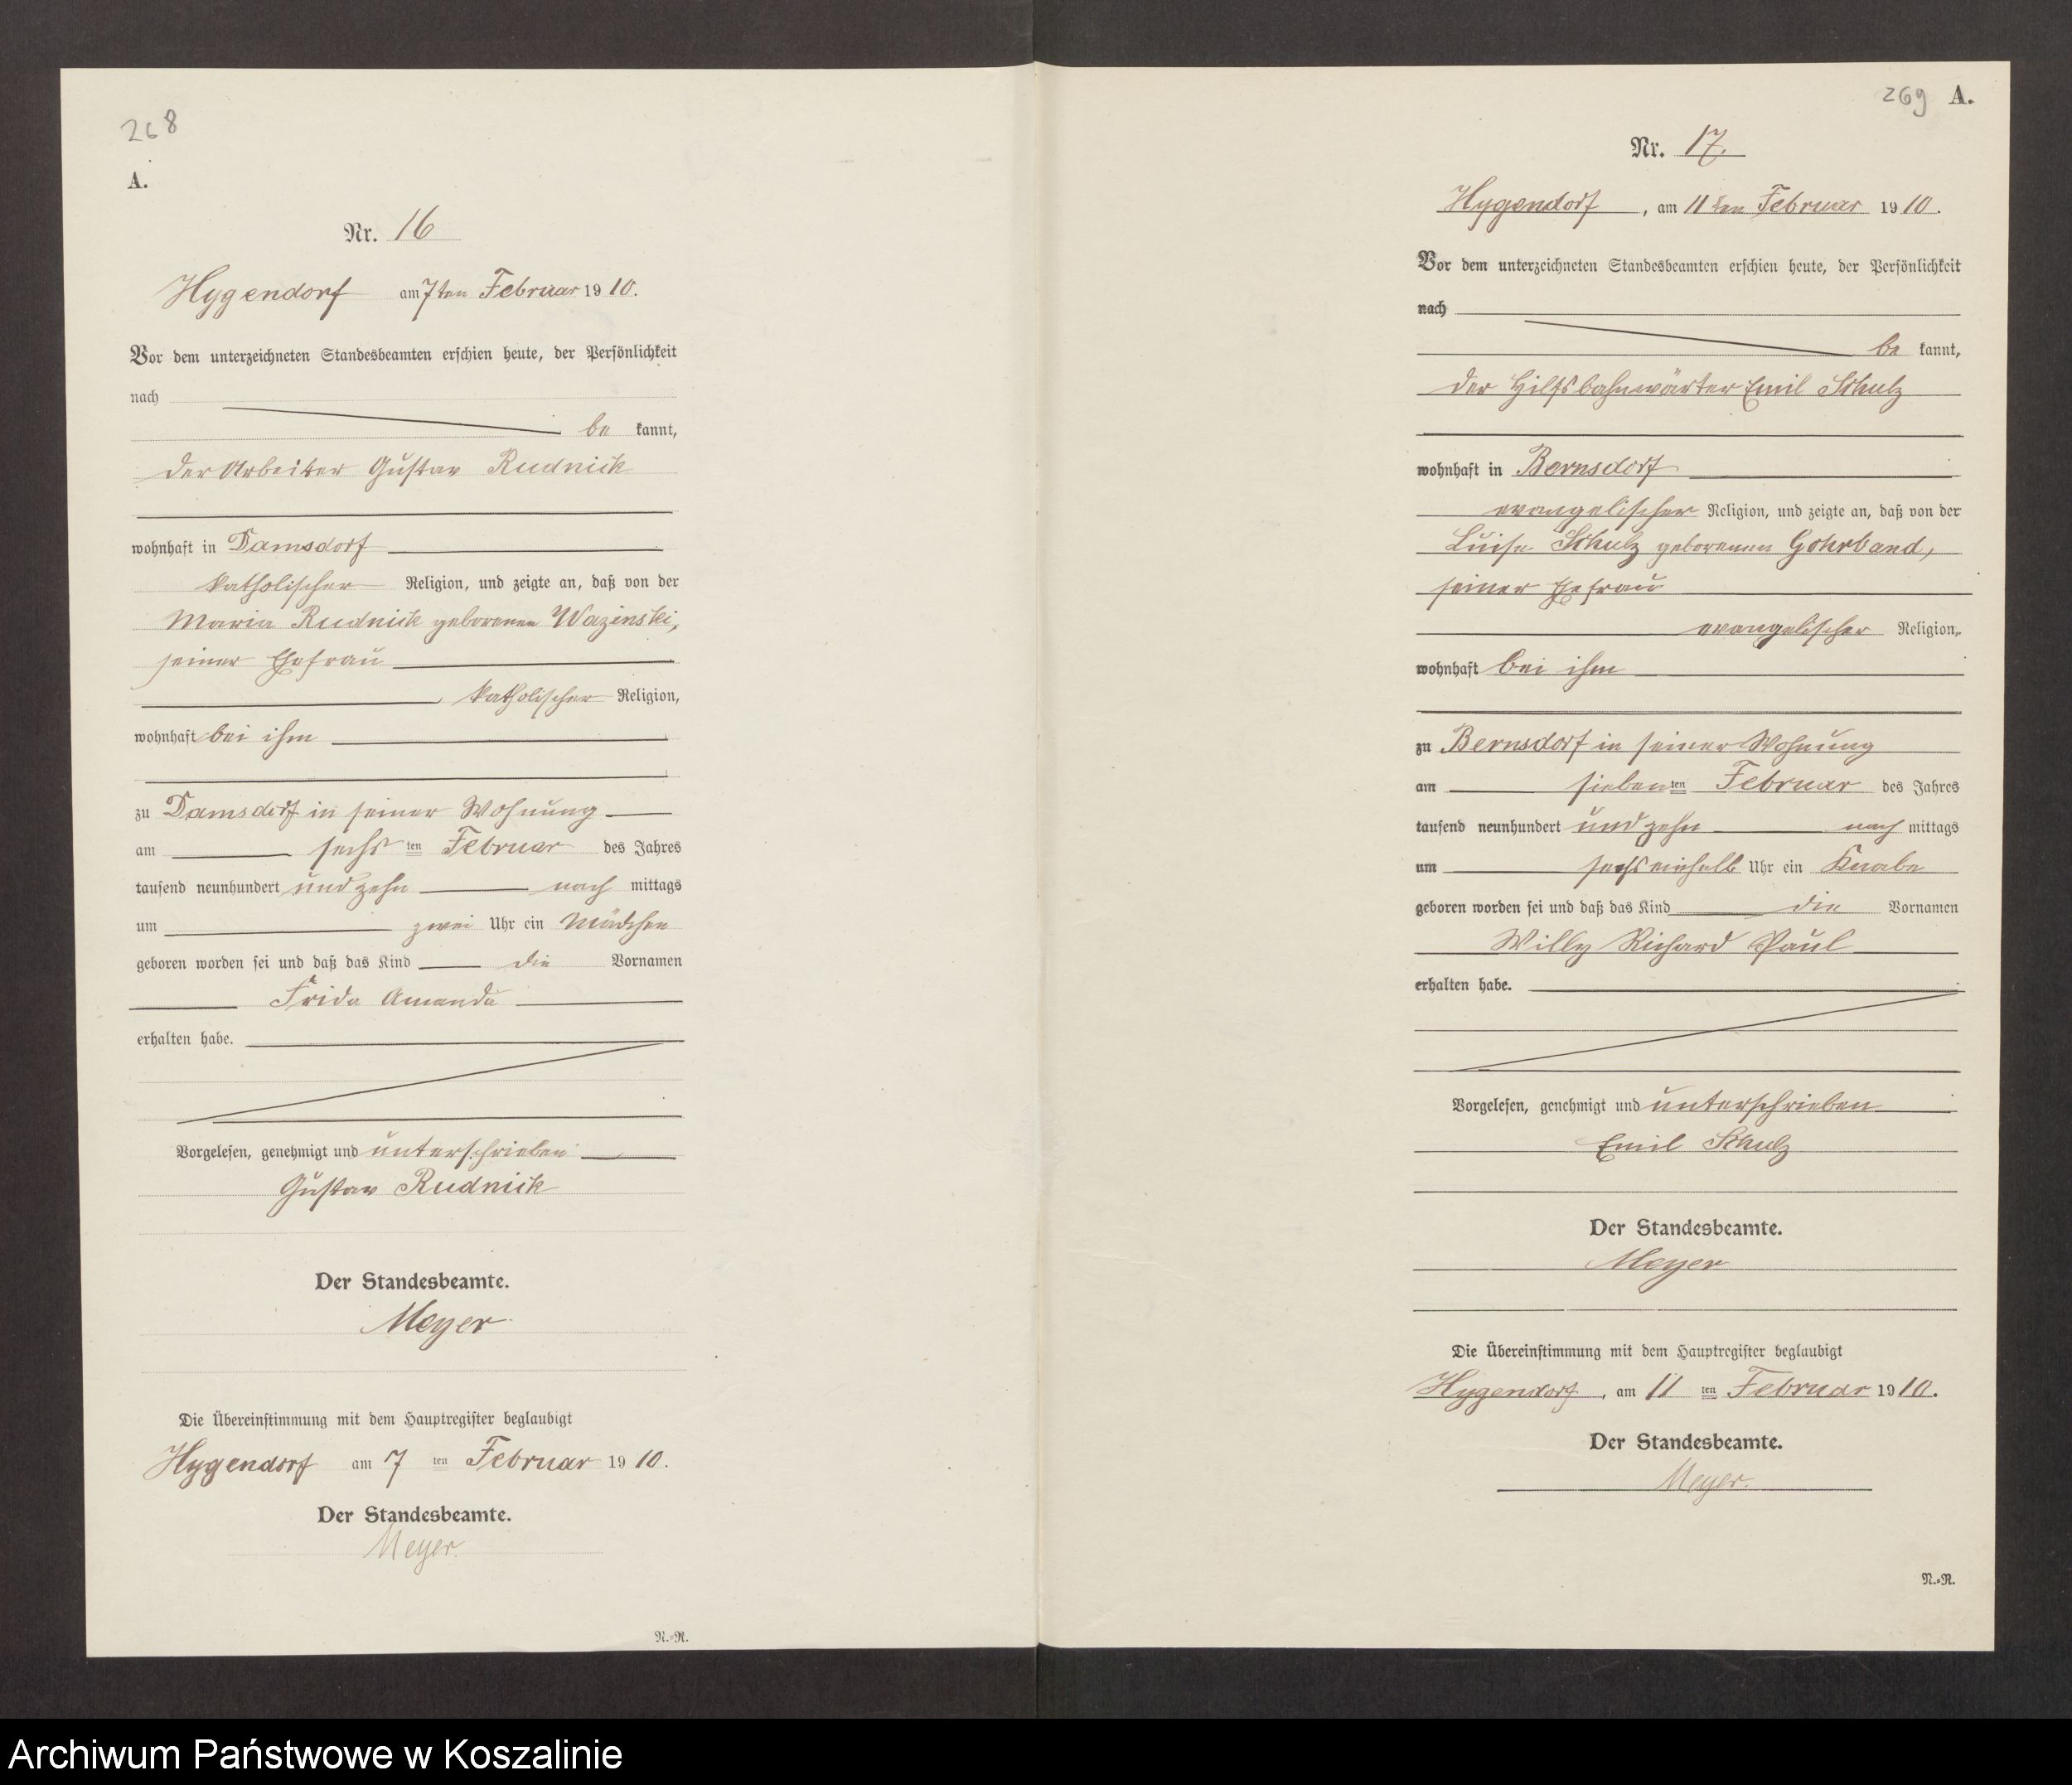 268
A.
Nr. 16
Hygendorf am 7ten Februar 1910.
Vor dem unterzeichneten Standesbeamten erschien heute, der Persönlichkeit
nach
be kannt,
der Arbeiter Gustav Rudnick
wohnhaft in Damsdorf
katholischer Religion, und zeigte an, daß von der
Maria Rudnick geborenen Wazinski,
seiner Ehefrau
katholischer Religion,
wohnhaft bei ihm
zu Damsdorf in seiner Wohnung
am sechs ten Februar des Jahres
tausend neunhundert und zehn nach mittags
um zwei Uhr ein Mädchen
geboren worden sei und daß das Kind die Vornamen
Frida Amanda
erhalten habe.
Vorgelesen, genehmigt und unterschrieben
Gustav Rudnick
Der Standesbeamte.
Meyer
Die Übereinstimmung mit dem Hauptregister beglaubigt
Hygendorf am 7 ten Februar 1910.
Der Standesbeamte.
Meyer.
N.-R.
269 A.
Nr. 17.
Hygendorf, am 11ten Februar 1910.
Vor dem unterzeichneten Standesbeamten erschien heute, der Persönlichkeit
nach
be kannt,
der Hilfsbahnwärter Emil Schulz
wohnhaft in Bernsdorf
evangelischer Religion, und zeigte an, daß von der
Luise Schulz geborenen Gohrband,
seiner Ehefrau
evangelischer Religion,
wohnhaft bei ihm
zu Bernsdorf in seiner Wohnung
am siebenten Februar des Jahres
tausend neunhundert und zehn nach mittags
um sechseinhalb Uhr ein Knabe
geboren worden sei und daß das Kind die Vornamen
Willy Richard Paul
erhalten habe.
Vorgelesen, genehmigt und unterschrieben
Emil Schulz
Der Standesbeamte.
Meyer
Die Übereinstimmung mit dem Hauptregister beglaubigt
Hygendorf, am 11 ten Februar 1910.
Der Standesbeamte.
Meyer.
N.-R.
Archiwum Państwowe w Koszalinie